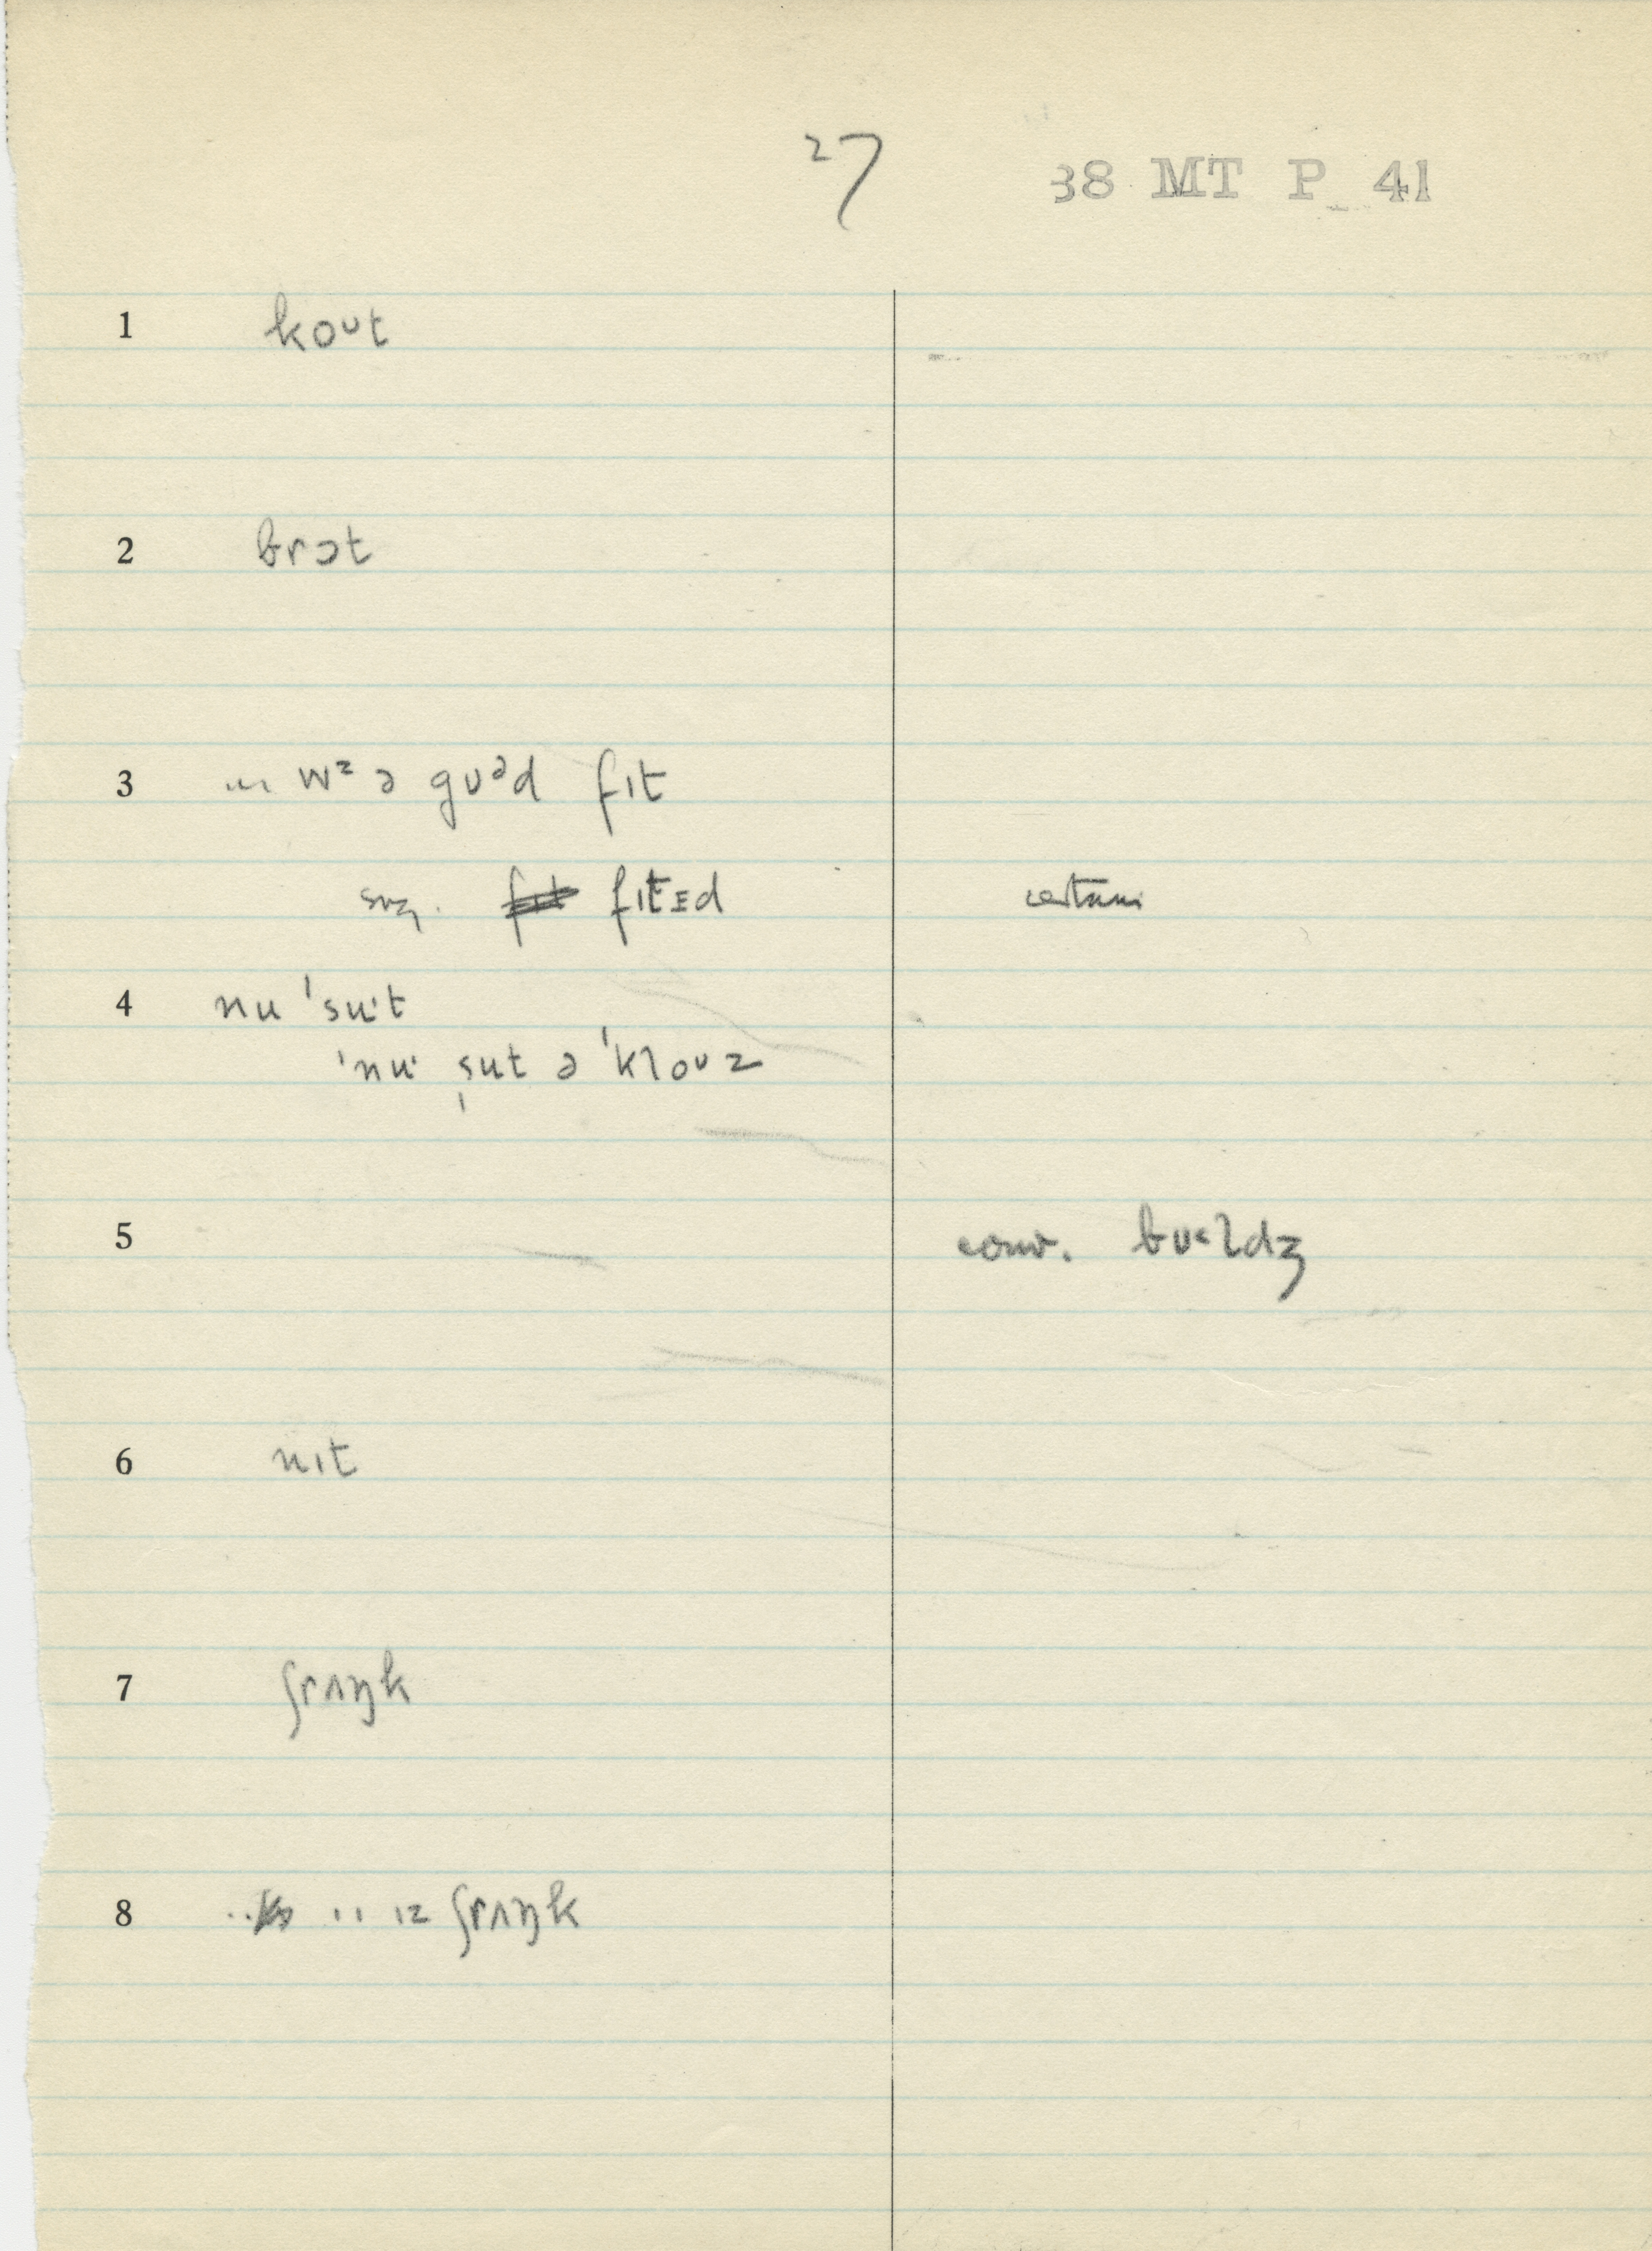 27
38 MT P 41
1 koʊt
2 brɔt
3 … wz ə gʊᵊd fɪt
sug. fɪtɪd certain
4 nu ˈsuˑt
ˈnuˑ ˌsut ə ˈkloʊz
5 conv. bʊ<ldʒ
6 nɪt
7 ʃrʌŋk
8 ɪz ʃrʌŋk